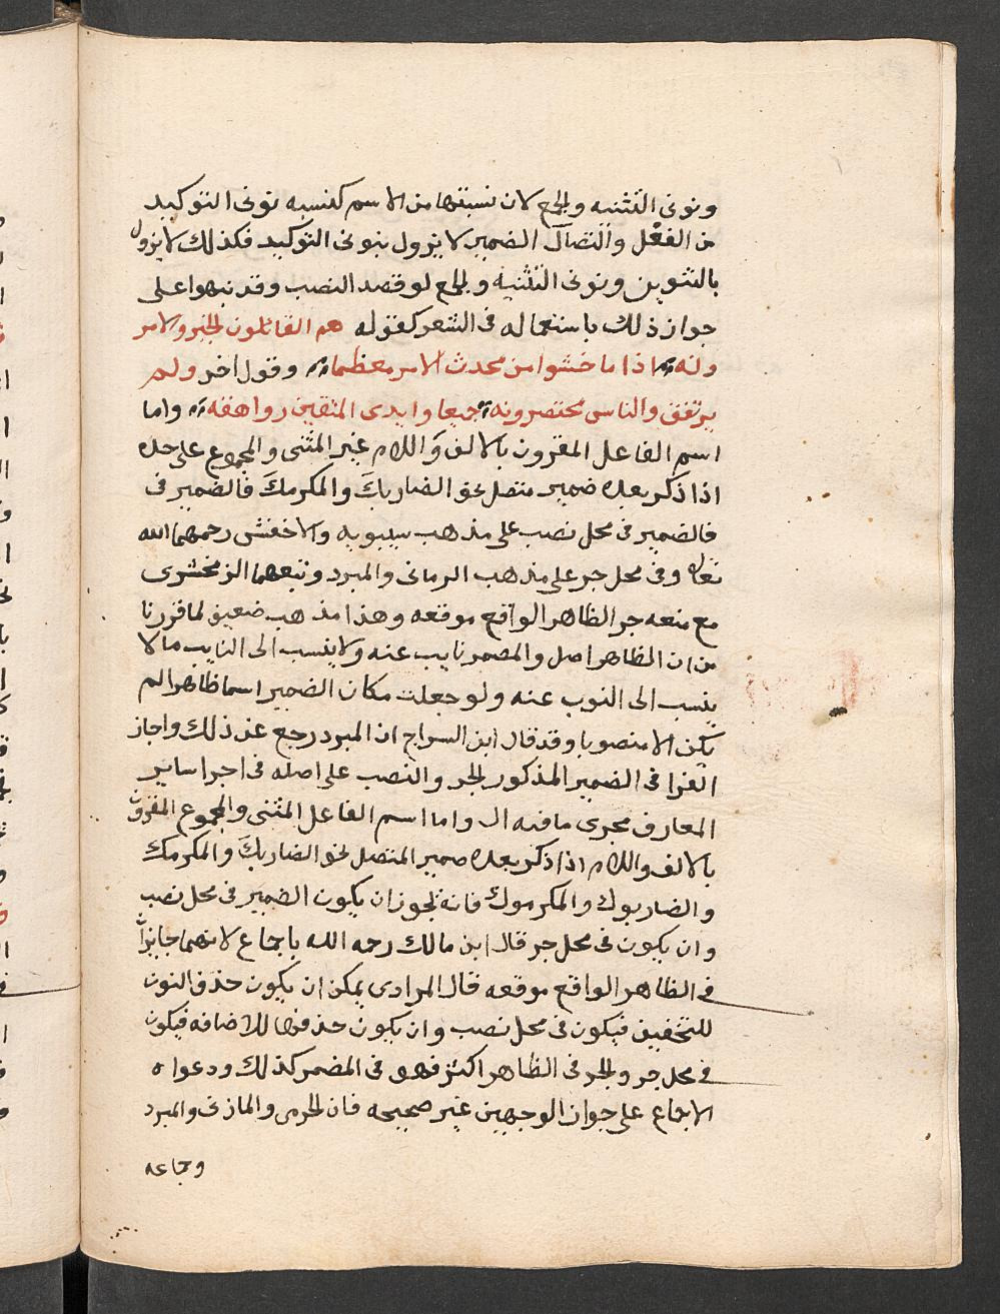 ونونى التثنيه والجمع لان نسبتها من الاسم كنسبه نونى التوكيد
من الفعل واتصال الضمير لا يزول بنونى التوكيد فكذلك لا يزول
بالتنوين ونونى التثنية والجمع لو قصد النصب وقد نبهوا على
جواز ذلك باستعماله فى الشعر كقوله هم القائلون الخير والامر
ونه اذا ما خشوا من محدث الامر معظما وقول اخر ولم
يرتفق والناس محتضرونه جميعا وايدى المتقين رواهقه واما
اسم الفاعل المقرون بالالف واللام غير المثنى والمجموع على حده
اذا ذكر بعده ضمير متصل نحو الضاربك والمكرمك فالضمير فى
فالضمير فى محل نصب على مذهب سيبويه والاخفش رحمهما الله
تعالى وفى محل جر على مذهب الرمانى والمبرد وتبعهما الزمخشرى
مع منعه جر الظاهر الواقع موقعه وهذا مذهب ضعيف لما قررنا
من ان الظاهر اصل والمضمر نايب عنه ولا ينسب الى النايب ما لا
ينسب الى النوب عنه ولو جعلت مكان الضمير اسما ظاهرا لم
يكن الا منصوبا وقد قال ابن السراج ان المبرد رجع عن ذلك واجاز
الفرا فى الضمير المذكور الجر والنصب على اصله فى اجرا ساير
المعارف مجرى ما فيه ال واما اسم الفاعل المثنى والمجموع المقرون
بالالف واللام اذا ذكر بعده ضمير المتصل نحو الضاربك والمكرمك
والضاربوك والمكرموك فانه يجوز ان يكون الضمير فى محل نصب
وان يكون فى محل جر قال ابن مالك رحمه الله باجماع لانهما جايزان
فى الظاهر الواقع موقعه قال المرادى يمكن ان يكون حذف النون
للتخفيف فيكون فى محل نصب وان يكون حذفها للاضافه فيكون
فى محل جر والجر فى الظاهر اكثر فهو فى المضمر كذلك ودعواه
الاجماع على جواز الوجهين غير صحيحه فان الجرمى والمازنى والمبرد
وجماعه